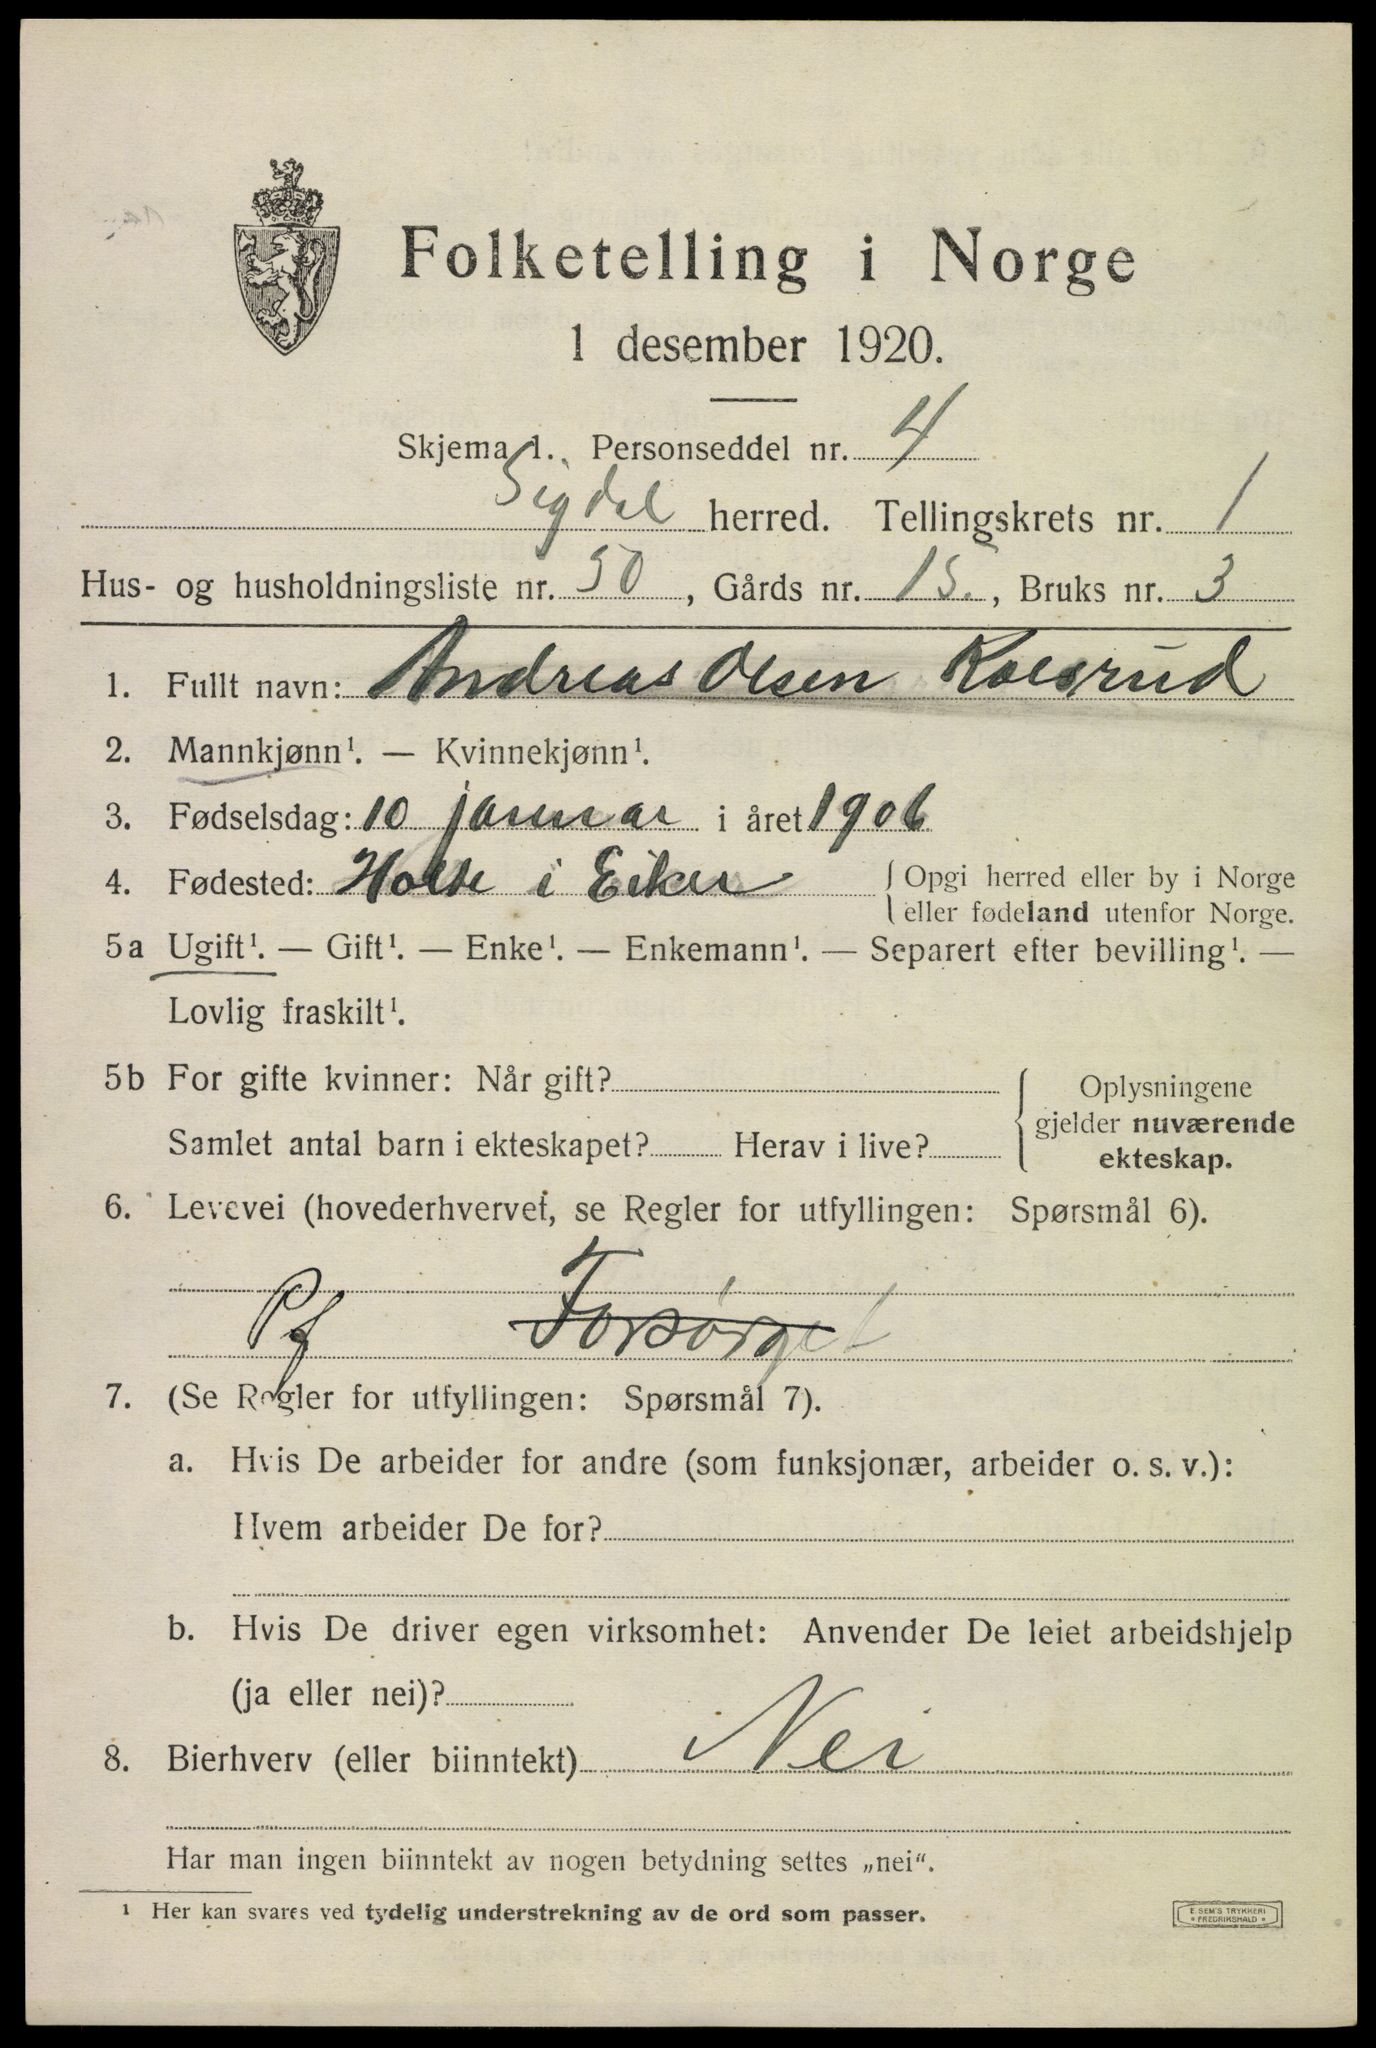 Folketelling i Norge
1 desember 1920.
Skjema 1. Personseddel nr. 4
Sigdal herred. Tellingskrets nr. 1
Hus- og husholdningsliste nr. 50, Gårds nr. 15., Bruks nr. 3
1. Fullt navn: Andreas Olsen Kolsrud
2. Mannkjønn¹. — Kvinnekjønn¹.
3. Fødselsdag: 10 januar i året 1906
4. Fødested: Holte i Eiker { Opgi herred eller by i Norge
eller fødeland utenfor Norge.
5a Ugift¹. — Gift¹. — Enke¹. — Enkemann¹. — Separert efter bevilling¹. —
Lovlig fraskilt¹.
5b For gifte kvinner: Når gift? { Oplysningene
gjelder nuværende
Samlet antal barn i ekteskapet? Herav i live? ekteskap.
6. Levevei (hovederhvervet, se Regler for utfyllingen: Spørsmål 6).
Pf Forsørget
7. (Se Regler for utfyllingen: Spørsmål 7).
a. Hvis De arbeider for andre (som funksjonær, arbeider o. s. v.):
Hvem arbeider De for?
b. Hvis De driver egen virksomhet: Anvender De leiet arbeidshjelp
(ja eller nei)?
8. Bierhverv (eller biinntekt) Nei
Har man ingen biinntekt av nogen betydning settes „nei“.
¹ Her kan svares ved tydelig understrekning av de ord som passer.
E. SEM'S TRYKKERI
* FREDRIKSHALD *